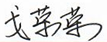 戈荣荣